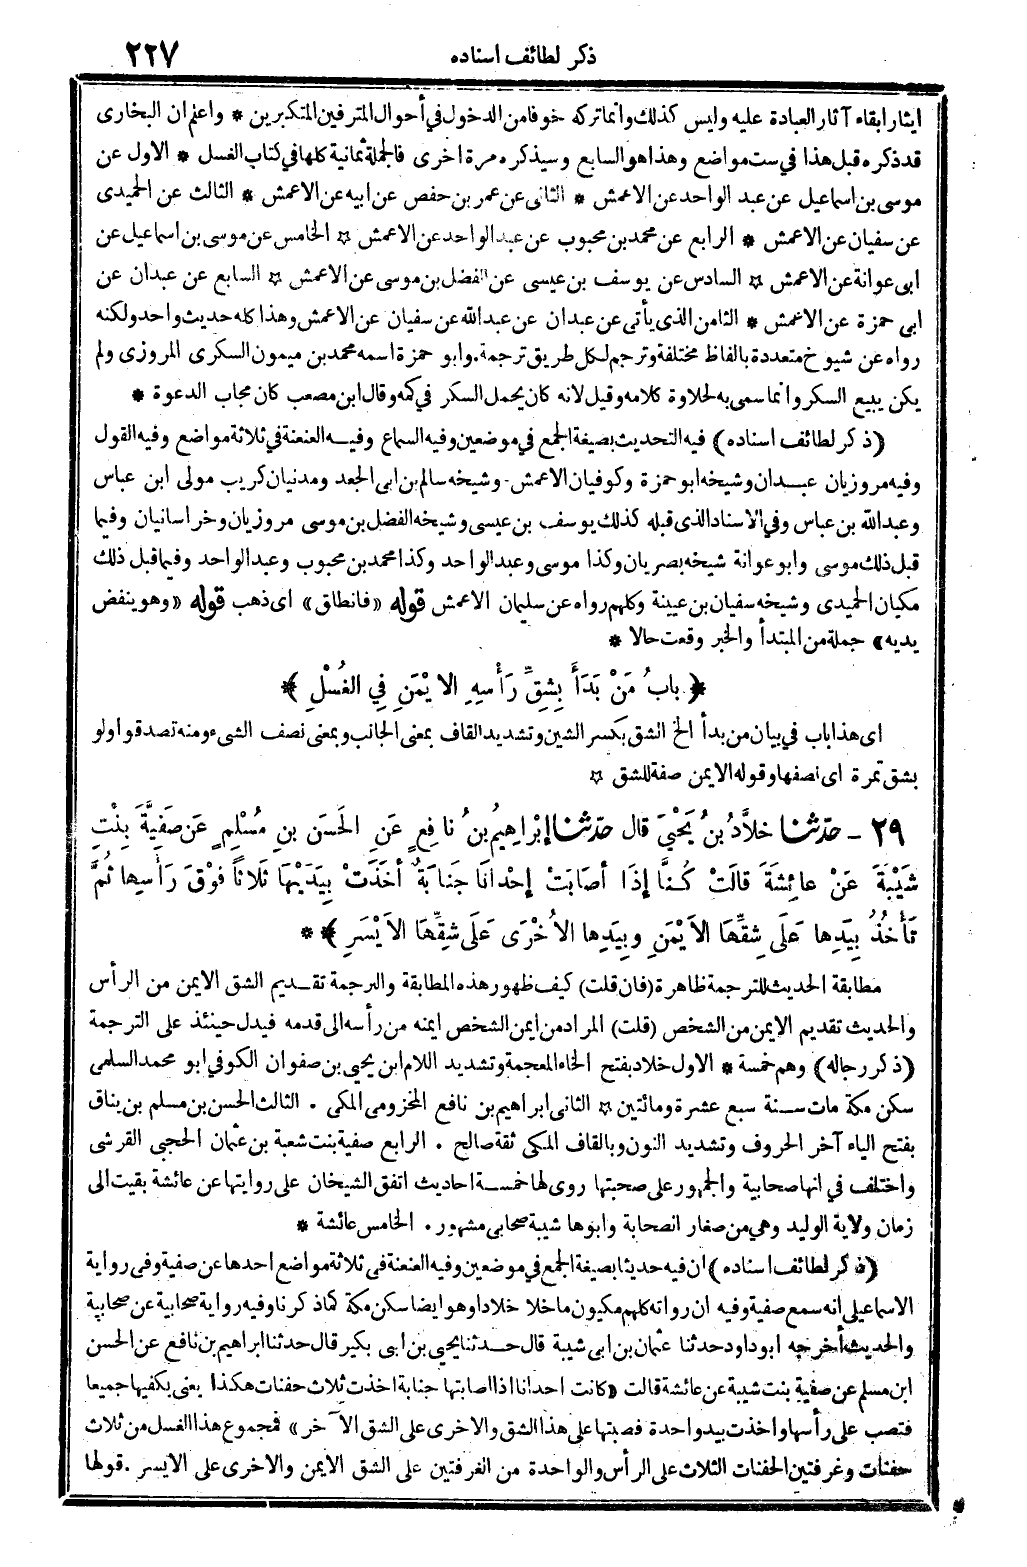 ذكر لطائف اسناده ٢٢٧
ايثار ابقاء آثار العبادة عليه وليس كذلك وانما تركه خوفا من الدخول في أحوال المترفين المتكبرين * واعلم ان البخارى
قد ذكره قبل هذا في ست مواضع وهذا هو السابع وسيذكره مرة اخرى فالجملة ثمانية كلها في كتاب الغسل * الاول عن
موسى بن اسماعيل عن عبد الواحد عن الاعمش * الثانى عن عمر بن حفص عن ابيه عن الاعمش * الثالث عن الحميدى
عن سفيان عن الاعمش * الرابع عن محمد بن محبوب عن عبد الواحد عن الاعمش ☆ الخامس عن موسى بن اسماعيل عن
ابى عوانة عن الاعمش ☆ السادس عن يوسف بن عيسى عن الفضل بن موسى عن الاعمش ☆ السابع عن عبدان عن
ابى حمزة عن الاعمش * الثامن الذى يأتى عن عبدان عن عبد الله عن سفيان عن الاعمش وهذا كله حديث واحد ولكنه
رواه عن شيوخ متعددة بالفاظ مختلفة وترجم لكل طريق ترجمة . وابو حمزة اسمه محمد بن ميمون السكرى المروزى ولم
يكن يبيع السكر وانما سمى به لحلاوة كلامه وقيل لانه كان يحمل السكر في كمه وقال ابن مصعب كان مجاب الدعوة *
(ذكر لطائف اسناده) فيه التحديث بصيغة الجمع في موضعين وفيه السماع وفيه العنعنة في ثلاثة مواضع وفيه القول
وفيه مروزيان عبدان وشيخه ابو حمزة وكوفيان الاعمش وشيخه سالم بن ابى الجعد ومدنيان كريب مولى ابن عباس
وعبد الله بن عباس وفي الاسناد الذى قبله كذلك يوسف بن عيسى وشيخه الفضل بن موسى مروزيان وخراسانيان وفيما
قبل ذلك موسى وابو عوانة شيخه بصريان وكذا موسى وعبد الواحد وكذا محمد بن محبوب وعبد الواحد وفيما قبل ذلك
مكيان الحميدى وشيخه سفيان بن عيينة وكلهم رواه عن سليمان الاعمش قوله «فانطلق» اى ذهب قوله «وهو ينفض
يديه» جملة من المبتدأ والخبر وقعت حالا *
﴿ بابُ مَنْ بَدَأَ بِشِقِّ رَأْسِهِ الايْمَنِ فِي الغُسْلِ ﴾
اى هذا باب في بيان من بدأ الخ الشق بكسر الشين وتشديد القاف بمعنى الجانب وبمعنى نصف الشىء ومنه تصدقوا ولو
بشق تمرة اى نصفها وقوله الايمن صفة للشق ☆
٢٩ - حدّثنا خلاَّدُ بنُ يَحْيَى قال حدّثنا إبْراهِيمُ بنُ نافِعٍ عَنِ الحَسَنِ بنِ مُسْلِمٍ عَنْ صَفِيَّةَ بِنْتِ
شَيْبَةَ عَنْ عائِشَةَ قالَتْ كُنَّا إذَا أصَابَتْ إحْدَانَا جَنَابَةٌ أخَذَتْ بِيَدَيْهَا ثَلاَثاً فَوْقَ رَأسِها ثُمَّ
تَأْخُذُ بِيَدِها عَلَى شِقِّهَا الأيْمَنِ وبِيَدِها الأُخْرَى عَلَى شِقِّهَا الأيْسَرِ ﴾ * *
مطابقة الحديث للترجمة ظاهرة (فان قلت) كيف ظهور هذه المطابقة والترجمة تقديم الشق الايمن من الرأس
والحديث تقديم الايمن من الشخص (قلت) المراد من أيمن الشخص ايمنه من رأسه الى قدمه فيدل حينئذ على الترجمة
(ذكر رجاله) وهم خمسة * الاول خلاد بفتح الخاء المعجمة وتشديد اللام ابن يحيى بن صفوان الكوفي ابو محمد السلمى
سكن مكة مات سنة سبع عشرة ومائتين ☆ الثانى ابراهيم بن نافع المخزومى المكى . الثالث الحسن بن مسلم بن يناق
بفتح الياء آخر الحروف وتشديد النون وبالقاف المكى ثقة صالح . الرابع صفية بنت شعبة بن عثمان الحجبى القرشى
واختلف في انها صحابية والجمهور على صحبتها روى لها خمسة احاديث اتفق الشيخان على روايتها عن عائشة بقيت الى
زمان ولاية الوليد وهي من صغار الصحابة وابوها شيبة صحابى مشهور . الخامس عائشة *
(ذكر لطائف اسناده) ان فيه حديثا بصيغة الجمع في موضعين وفيه العنعنة فى ثلاثة مواضع احدها عن صفية وفى رواية
الاسماعيلى انه سمع صفية وفيه ان رواته كلهم مكيون ما خلا خلادا وهو ايضا سكن مكة كما ذكرنا وفيه رواية صحابية عن صحابية
والحديث أخرجه ابو داود حدثنا عثمان بن ابى شيبة قال حدثنا يحيى بن ابى بكير قال حدثنا ابراهيم بن نافع عن الحسن
ابن مسلم عن صفية بنت شيبة عن عائشة قالت «كانت احدانا اذا اصابتها جنابة اخذت ثلاث حفنات هكذا يعنى بكفيها جميعا
فتصب على رأسها واخذت بيد واحدة فصبتها على هذا الشق والاخرى على الشق الآخر» فمجموع هذا الغسل من ثلاث
حفنات وغرفتين الحفنات الثلاث على الرأس والواحدة من الغرفتين على الشق الايمن والاخرى على الايسر . قولها